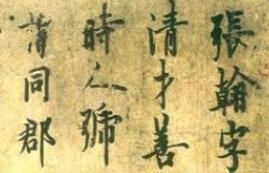 張翰字
清才善
時人號
謂同郡